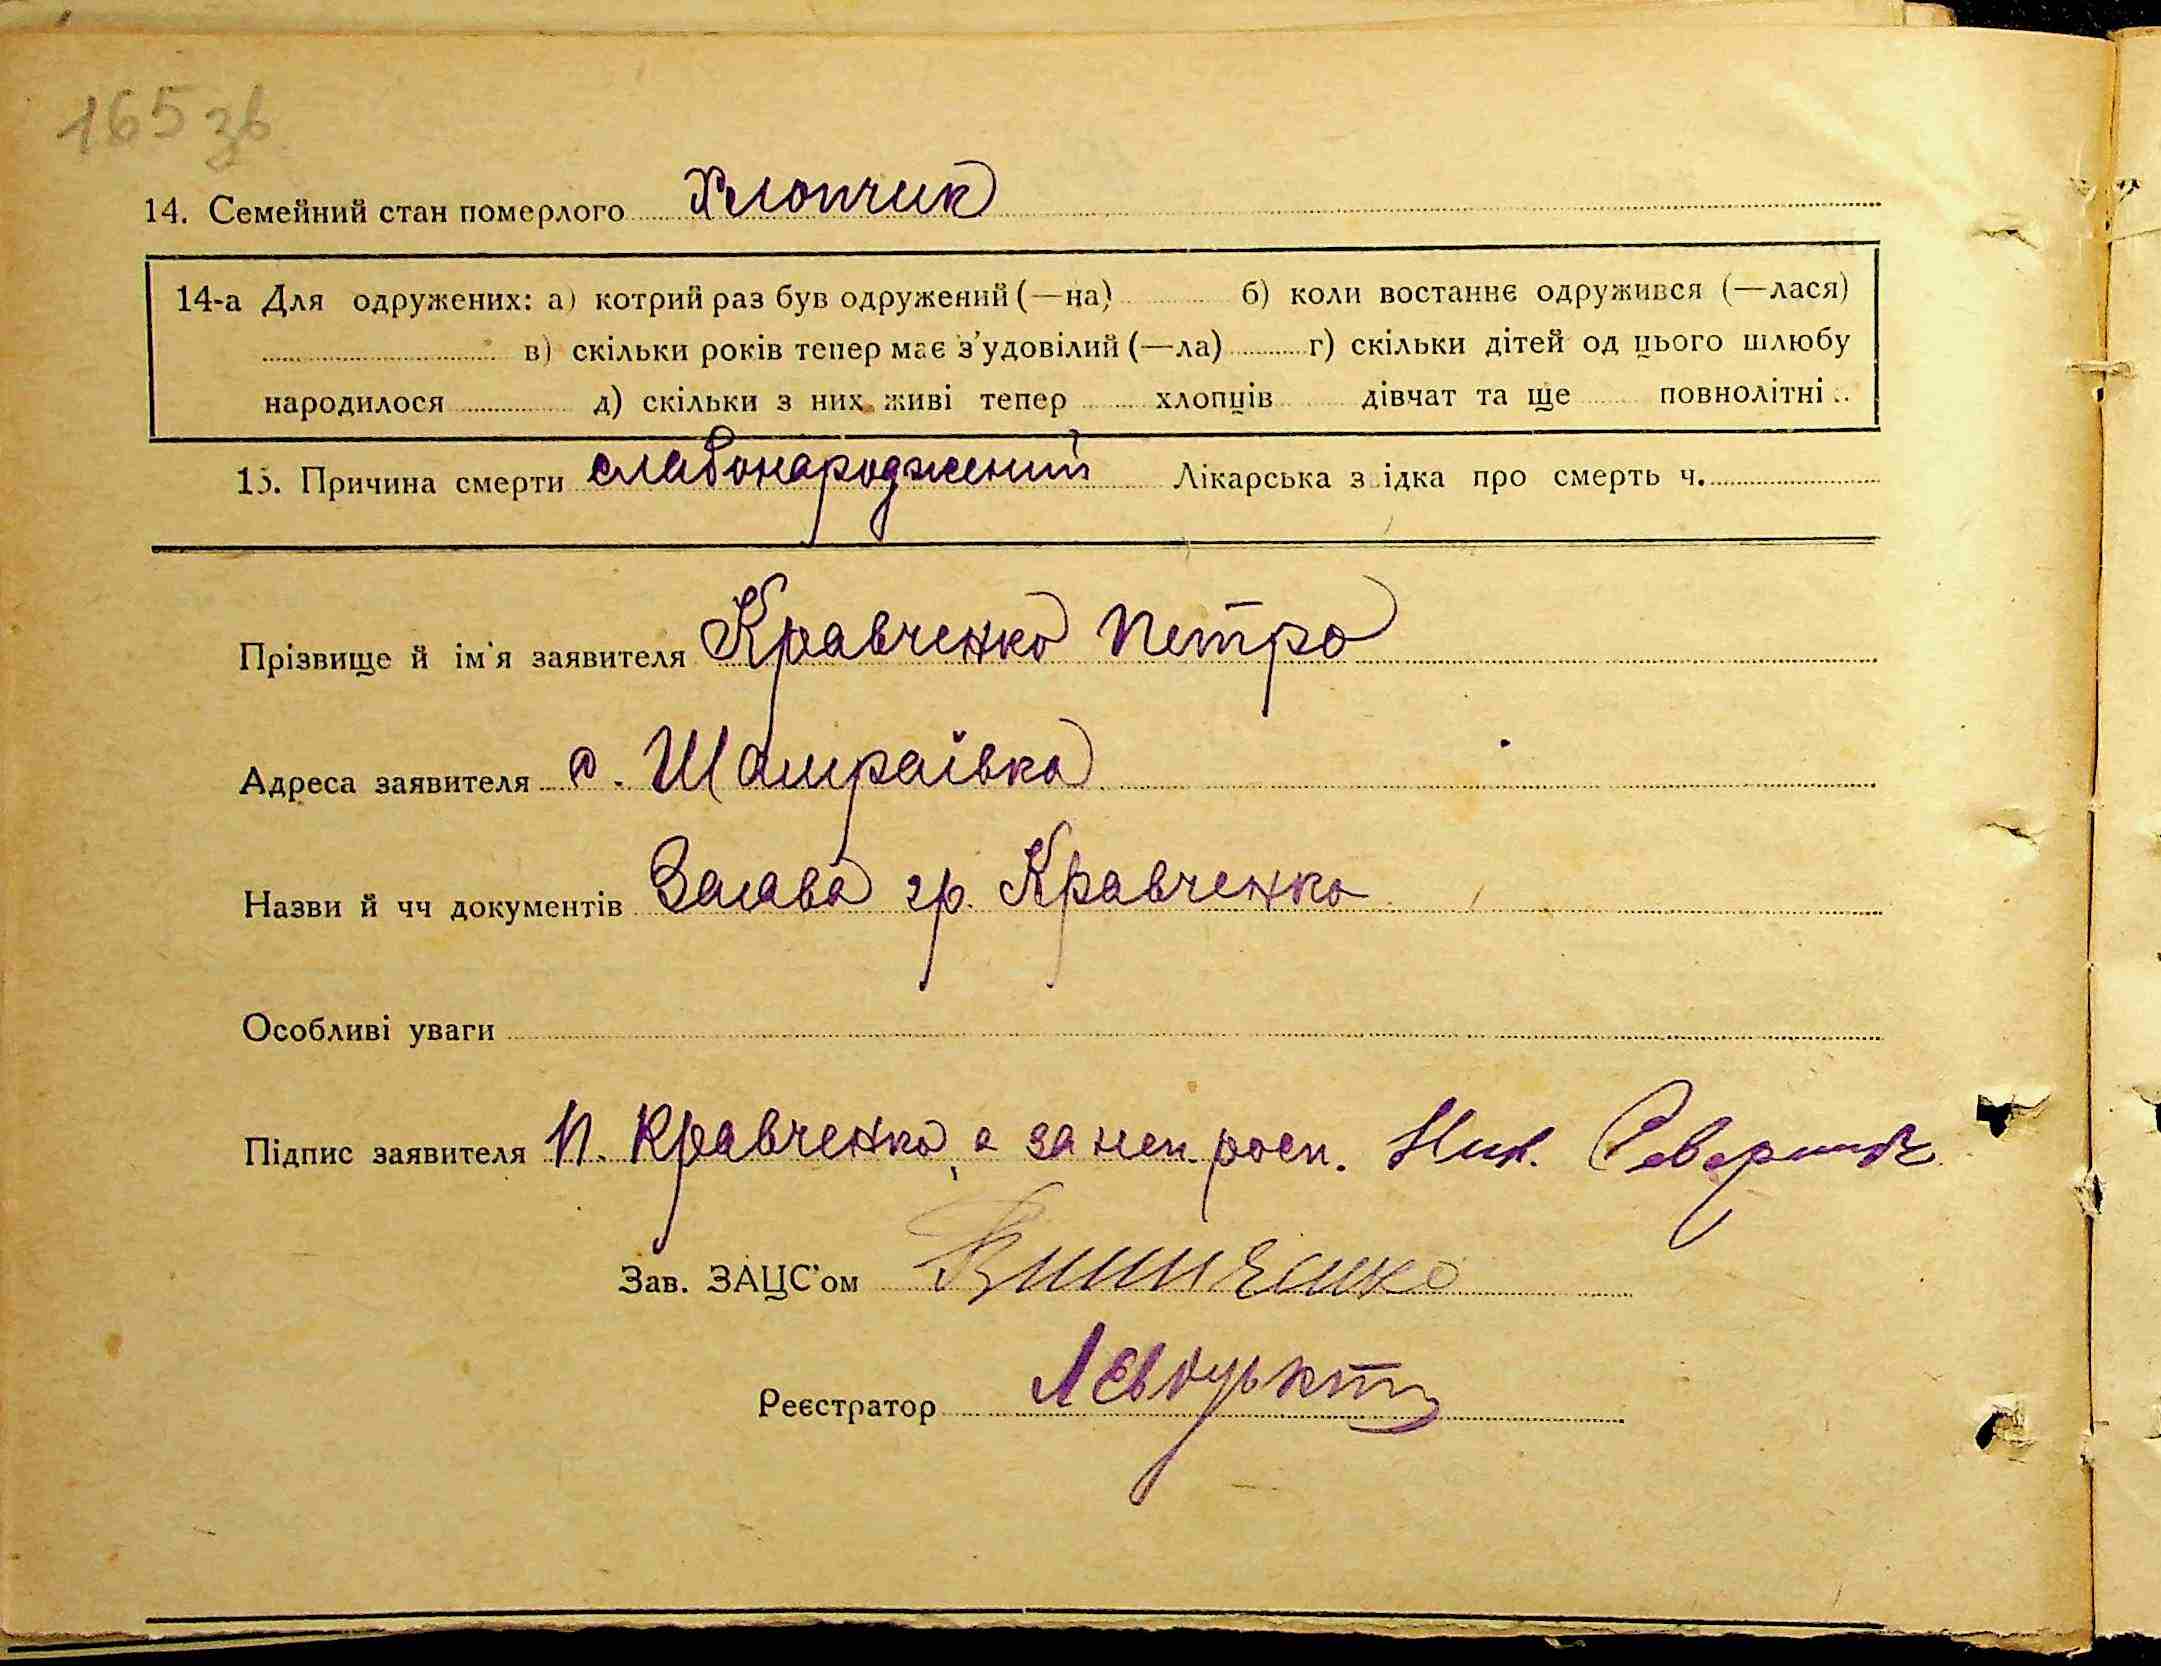 165 зв
14. Семейний стан померлого Хлопчик
14-а Для одружених: а) котрий раз був одружений (—на) б) коли востаннє одружився (—лася)
в) скільки років тепер має з'удовілий (—ла) г) скільки дітей од цього шлюбу
народилося д) скільки з них живі тепер хлопців дівчат та ще повнолітні
15. Причина смерти слабонароджений Лікарська з ідка про смерть ч.
Прізвище й ім'я заявителя Кравченко Петро
Адреса заявителя с. Шамраївка
Назви й чч документів Заява гр. Кравченко
Особливі уваги
Підпис заявителя П. Кравченко, а за неп. росп.
Зав. ЗАЦС'ом Винниченко
Реєстратор